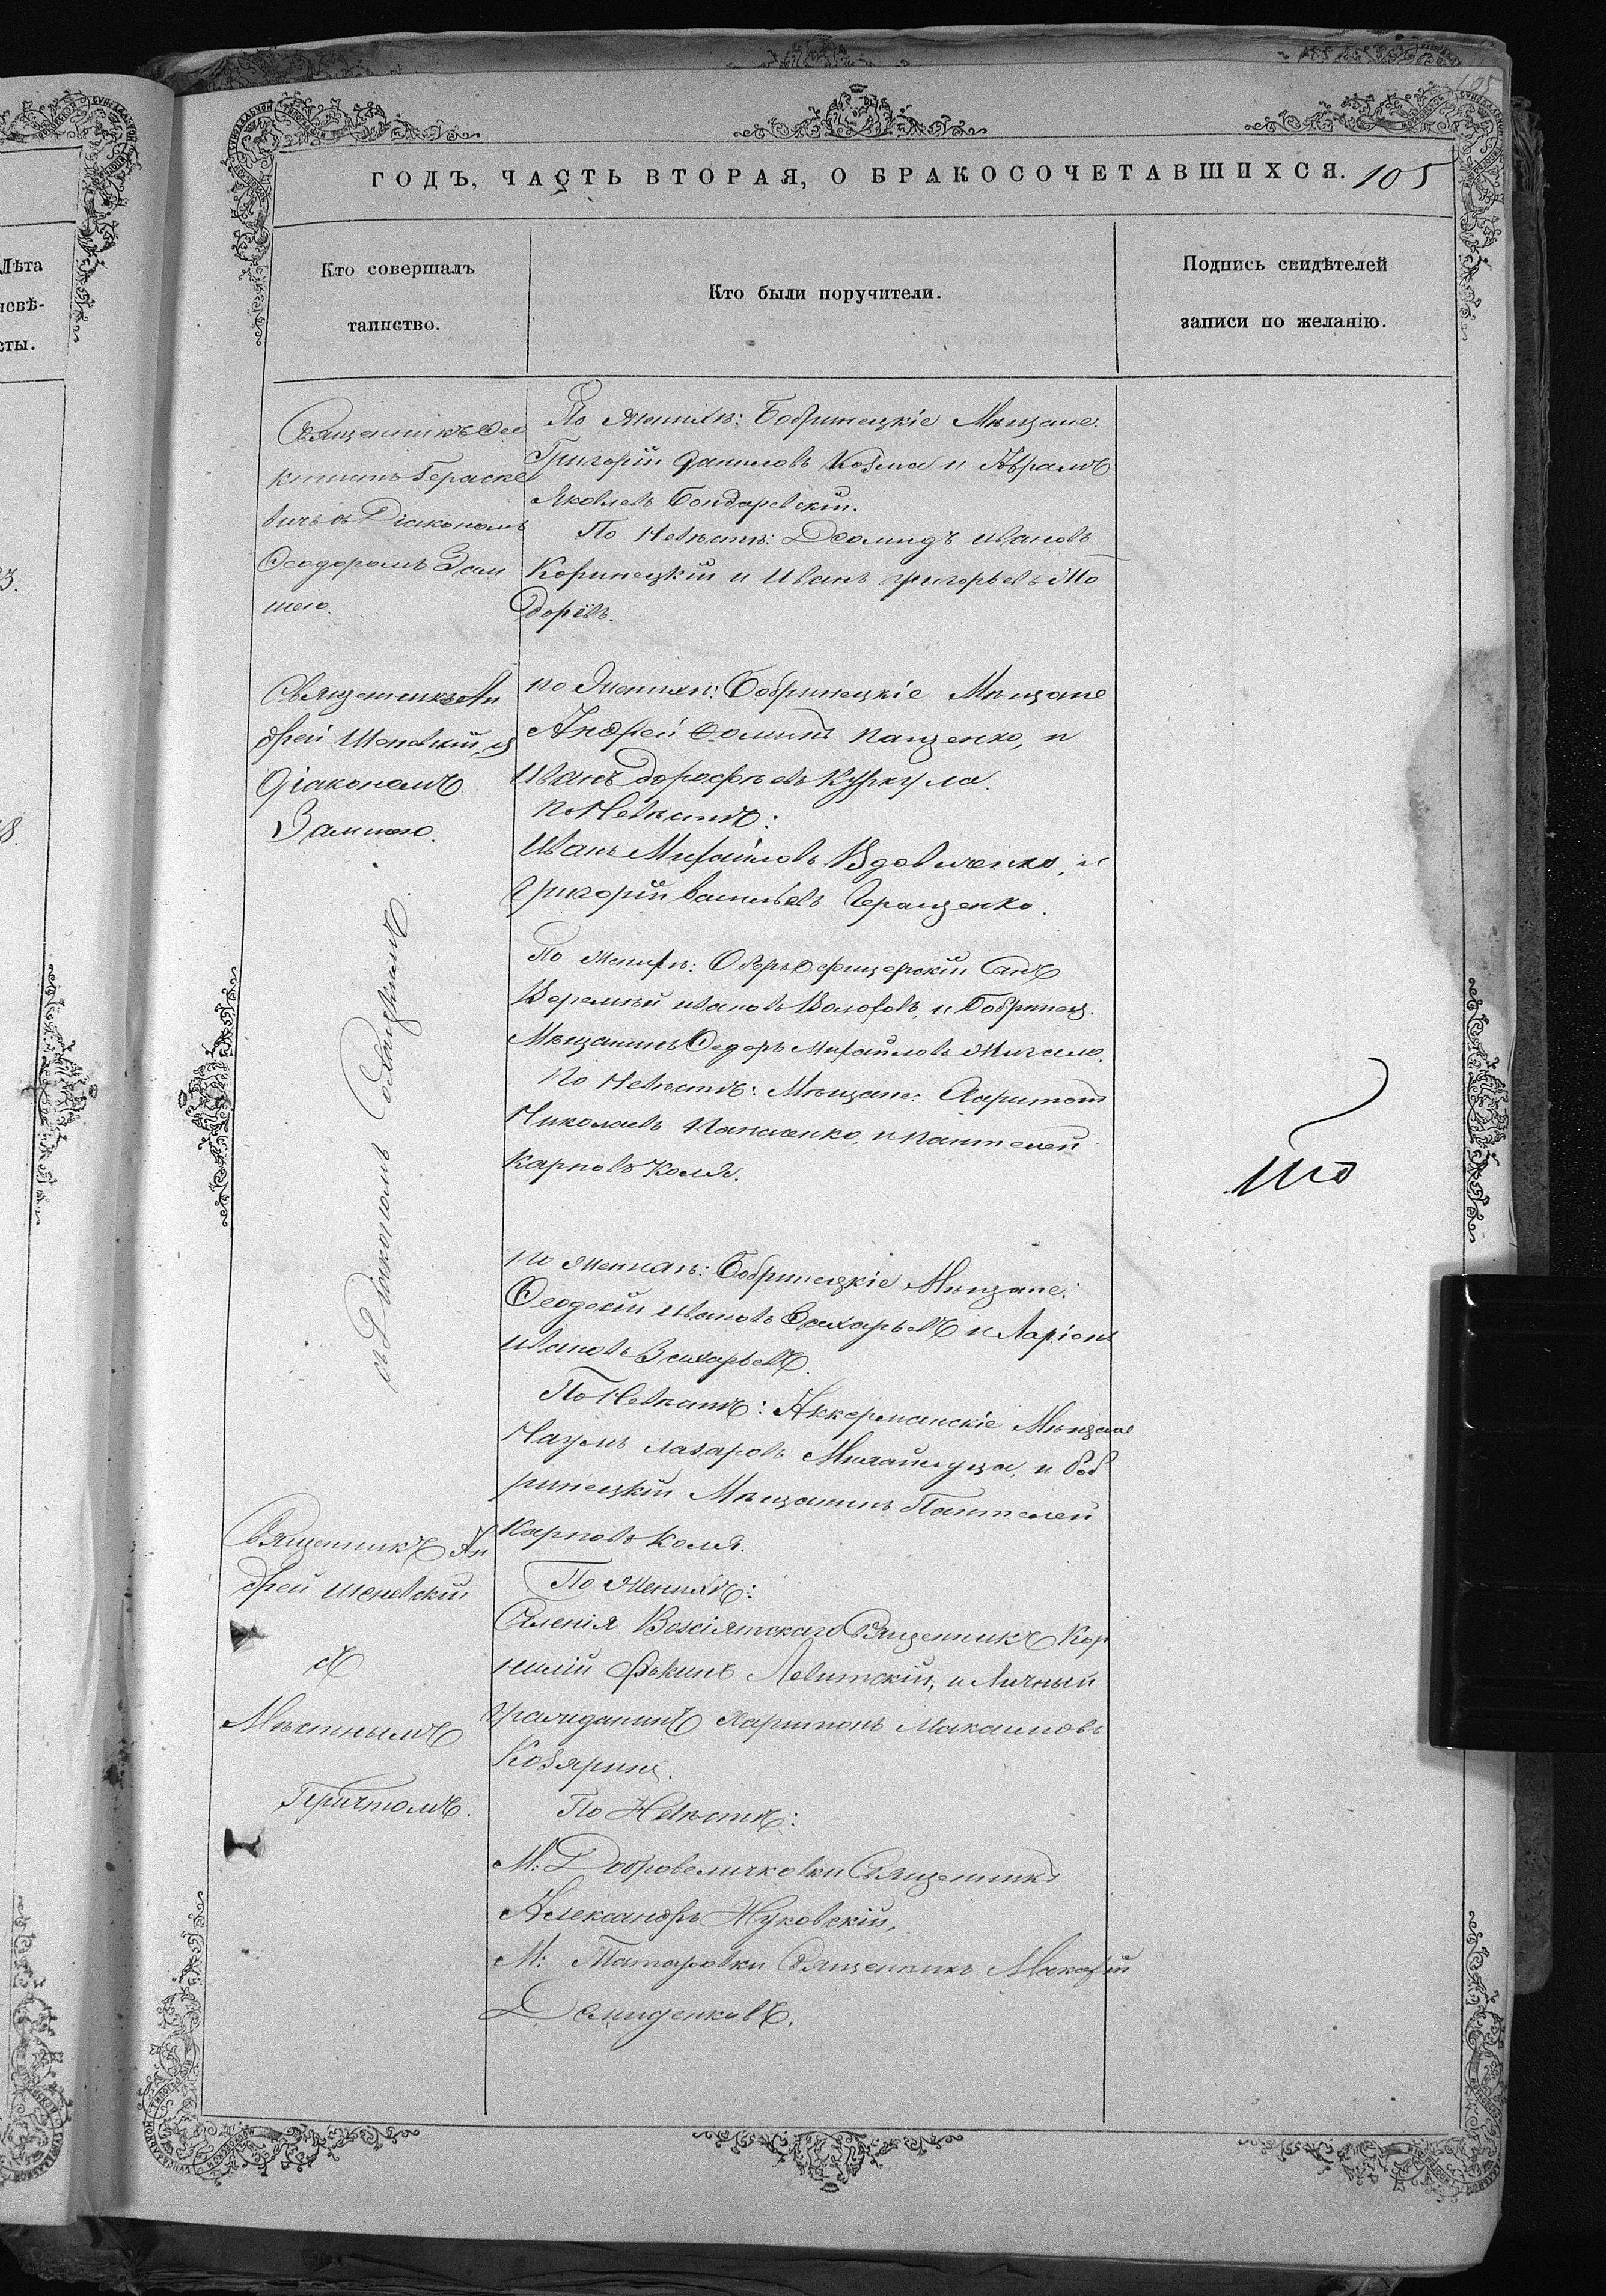 105
ГОДЪ, ЧАСТЬ ВТОРАЯ, О БРАКОСОЧЕТАВШИХСЯ. 105
Лѣта
сты.
Кто совершалъ
таинство.
Кто были поручители.
Подпись свидѣтелей
записи по желанію.
Священникъ Фео
ктистъ Гераске
вичъ съ Діакономъ
Феодоромъ
По женихѣ: Бобринецкіе Мѣщане.
Григорій Даниловъ Козма и Авраамъ
Яковлевъ Бондаревскій.
По Невѣстѣ: Деомидъ Ивановъ
Коринецкій и Иванъ Григорьевъ То
доріевъ.
Священникъ Ан
дрей Шеневскій, съ
Діакономъ
по Женихѣ: Бобринецкіе Мѣщане
Андрей Фоминъ Пащенко, и
Иванъ Дорофѣевъ Куркула.
По Невѣстѣ:
Иванъ Михайловъ Вдовиченко, и
Григорій Васильевъ Геращенко.
съ Діакономъ
По Женихѣ: Оберъ Офицерскій Сынъ
Веремѣй Ивановъ Волоховъ, и Бобринец.
Мѣщанинъ Федоръ Михайловъ
По Невѣстѣ: Мѣщане: Харитонъ
Николаевъ Панасенко, и Пантелей
Карповъ Коля.
По Женихѣ: Бобринецкіе Мѣщане:
Феодосій Ивановъ Захарьевъ и Ларіонъ
Ивановъ Захарьевъ.
По Невѣстѣ: Аккерманскіе Мѣщане
Наумъ Лазаровъ и Боб
ринецкій Мѣщанинъ Пантелей
Карповъ Коля.
Священникъ Ан
дрей Шеневскій
съ
Мѣстнымъ
Причтомъ.
По Женихѣ:
Селенія Возсіятскаго Священникъ Кор
нилій Левитскій, и Личный
гражданинъ Харитонъ
По Невѣстѣ:
М: Добровеличковки Священникъ
Александръ Жуковскій,
М: Татаровки Священникъ Макарій
Демиденковъ.